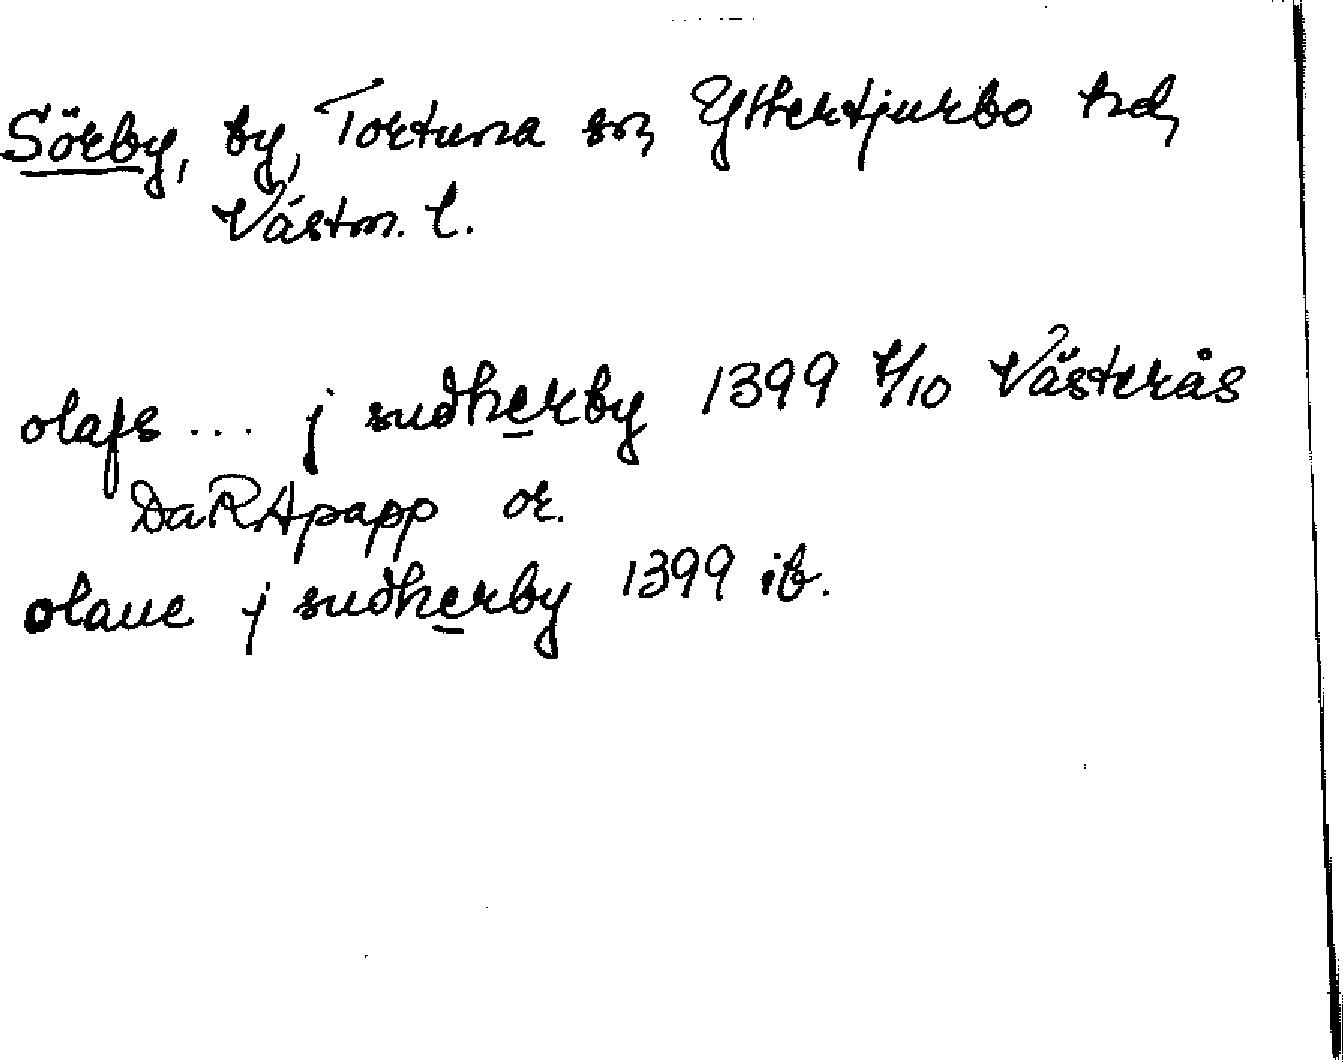 Sörby, by, Tortuna sn, Yttertjurbo hd,
Västm. l.
olafs ... j sudherby 1399 7/10 Västerås
DaRApapp or.
olaue j sudherby 1399 ib.